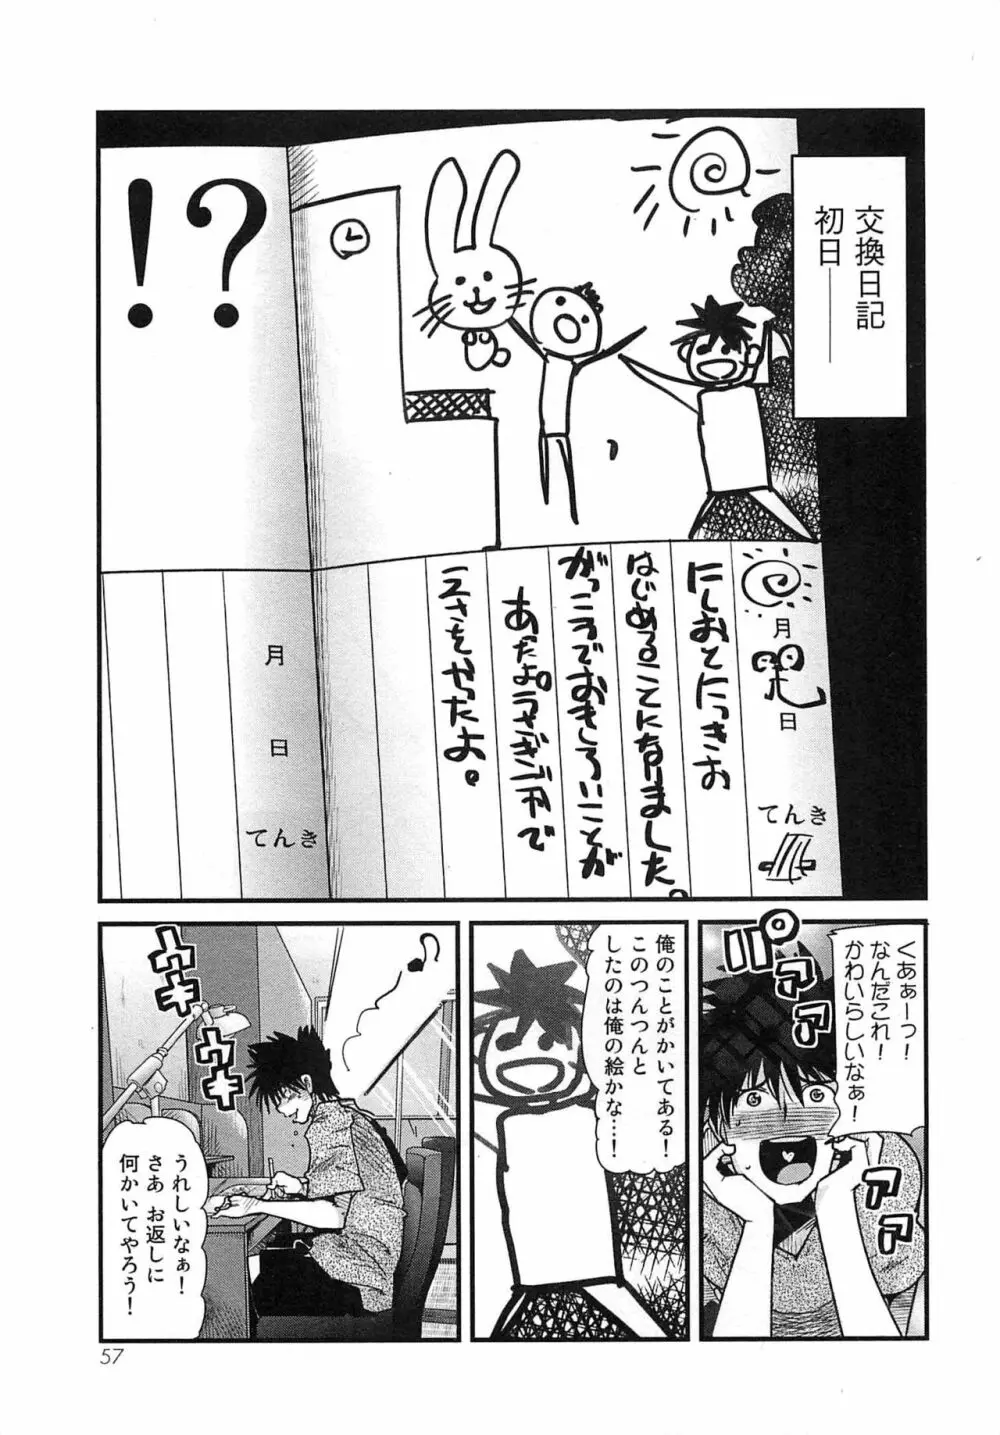 交換日記
初日――
!?
月
日
てんき
にしおとにっきお
はじめることになりました。
がっこうでおもしろいことが
あたよ。うさぎごやで
えさをやったよ。
月
日
てんき
くあぁーっ!
なんだこれ!
かわいらしいなぁ!
パアアアア
俺のことがかいてある!
このつんつんと
したのは俺の絵かな…!
ウキウキ
ウキウキ
うれしいなぁ!
さあ お返しに
何かいてやろう!
57